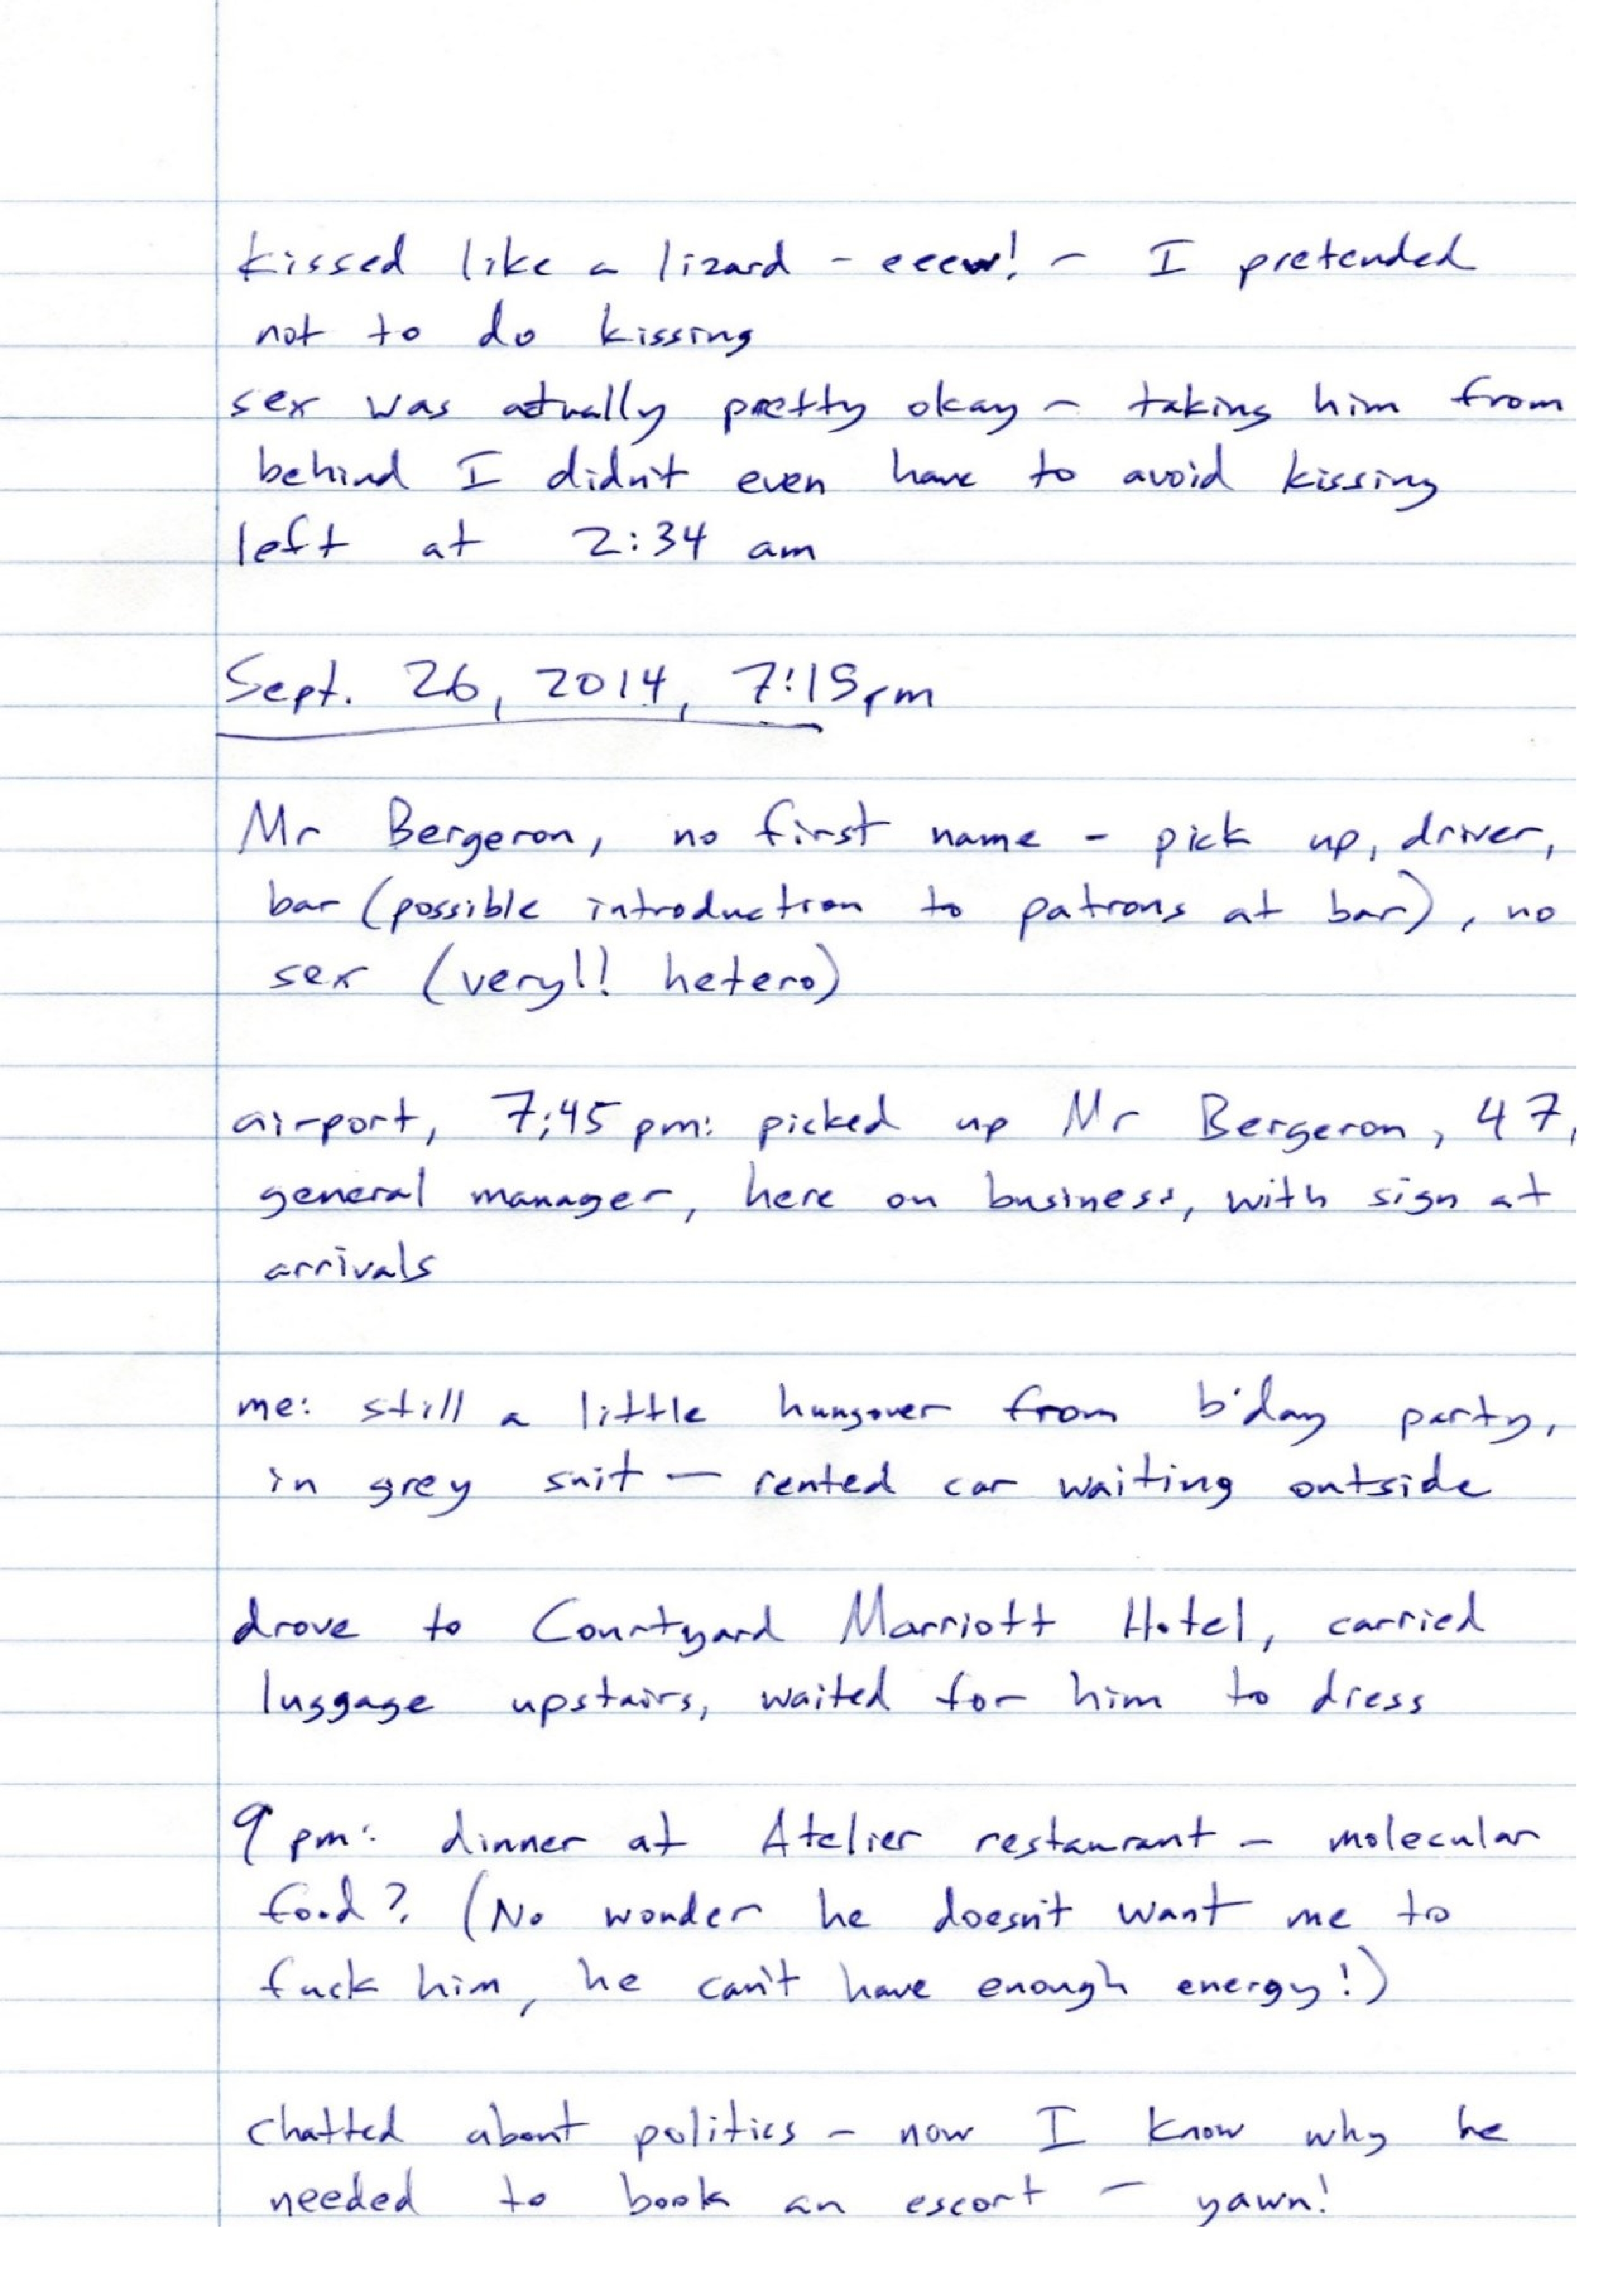 kissed like a lizard - eeew! - I pretended
not to do kissing
sex was actually pretty okay - taking him from
behind I didn't even have to avoid kissing
left at 2:34 am
Sept. 26, 2014, 7:15pm
Mr Bergeron, no first name - pick up, driver,
bar (possible introduction to patrons at bar), no
sex (very!! hetero)
airport, 7:45 pm: picked up Mr Bergeron, 47,
general manager, here on business, with sign at
arrivals
me: still a little hungover from b'day party,
in grey suit - rented car waiting outside
drove to Courtyard Marriott Hotel, carried
luggage upstairs, waited for him to dress
9 pm: dinner at Atelier restaurant - molecular
food? (No wonder he doesn't want me to
fuck him, he can't have enough energy!)
chatted about politics - now I know why he
needed to book an escort - yawn!